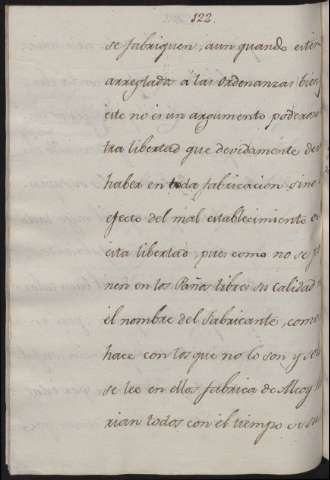 122.
se fabriquen, aun quando esten
arreglados á las ordenanzas
este no es un argumento poderoso
tra libertad que devidamente de
haber en toda fabricacion sino
efecto del mal establecimiento
esta libertad, pues como no se
nen en los Paños libres su calidad
el nombre del fabricante, como
hace con los que no lo son y
se lee en ellos fabrica de Alcoy
rian todos con el tiempo